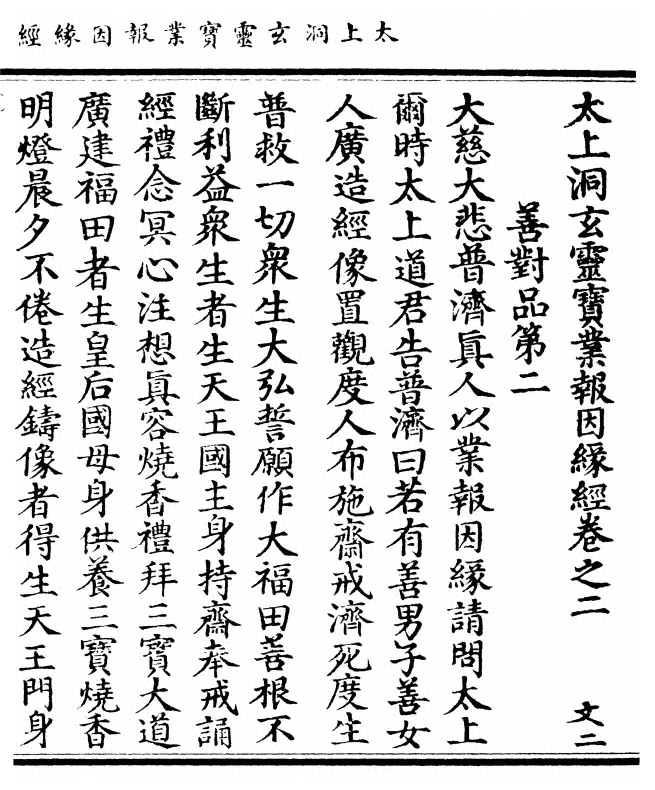 太上洞玄靈寶業報因緣經
太上洞玄靈寶業報因緣經卷之二
文二
善對品第二
大慈大悲普濟眞人以業報因緣請問太上
爾時太上道君告普濟曰若有善男子善女
人廣造經像置觀度人布施齋戒濟死度生
普救一切衆生大弘誓願作大福田善根不
斷利益衆生者生天王國主身持齋奉戒誦
經禮念冥心注想眞容燒香禮拜三寶大道
廣建福田者生皇后國母身供養三寶燒香
明燈晨夕不倦造經鑄像者得生天王門身